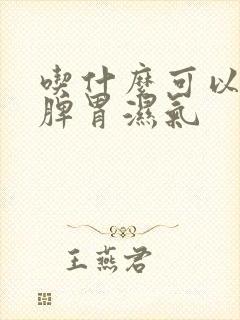 喫什麼可以
脾胃濕氣
王燕君